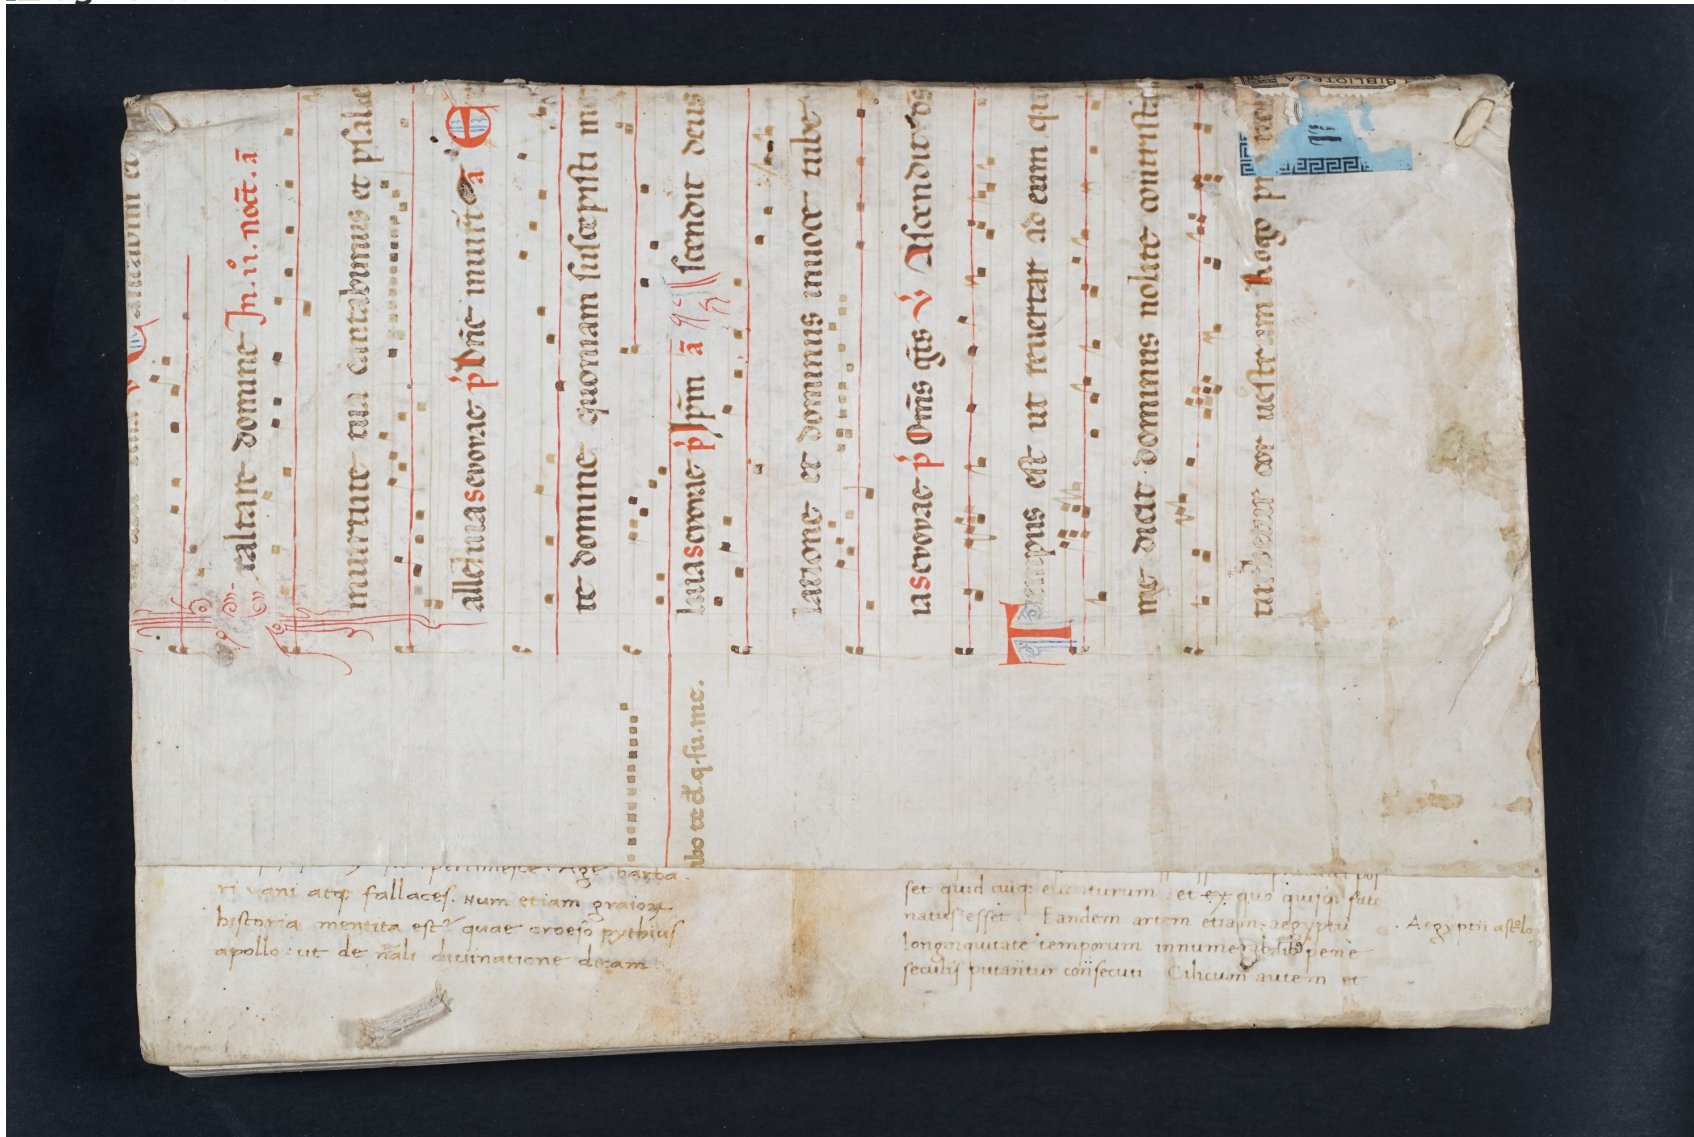 xaltare domine Jn. ii. noct. a
in uirtute tua cantabimus et psalle
alleluia seuouae p Dne in uirt a E
te domine quoniam suscepisti me
luia seuouae p Jhpm a scendit deus
latione et dominus in uoce tube
ia seuouae p Oms gtis V Ascendit ds
Tempus est ut reuertar ad eum qui
me dicit dominus nolite contrista
cor uestrum Rogo
abo te d. q. su. me.
pertimesce. Age barba
ri vani atq; fallaces. Num etiam graior
historia mentita est? quae croeso pythius
apollo: ut de nali divinatione dicam
set quid cuiq; eventurum et ex quo quisq; fato
natus esset. Eandem artem etiam aegyptii
longinquitate temporum innumerabilib; pene
seculis putantur consecuti Cilicum autem et
. Aegyptii astolo
BIBLIOTECA